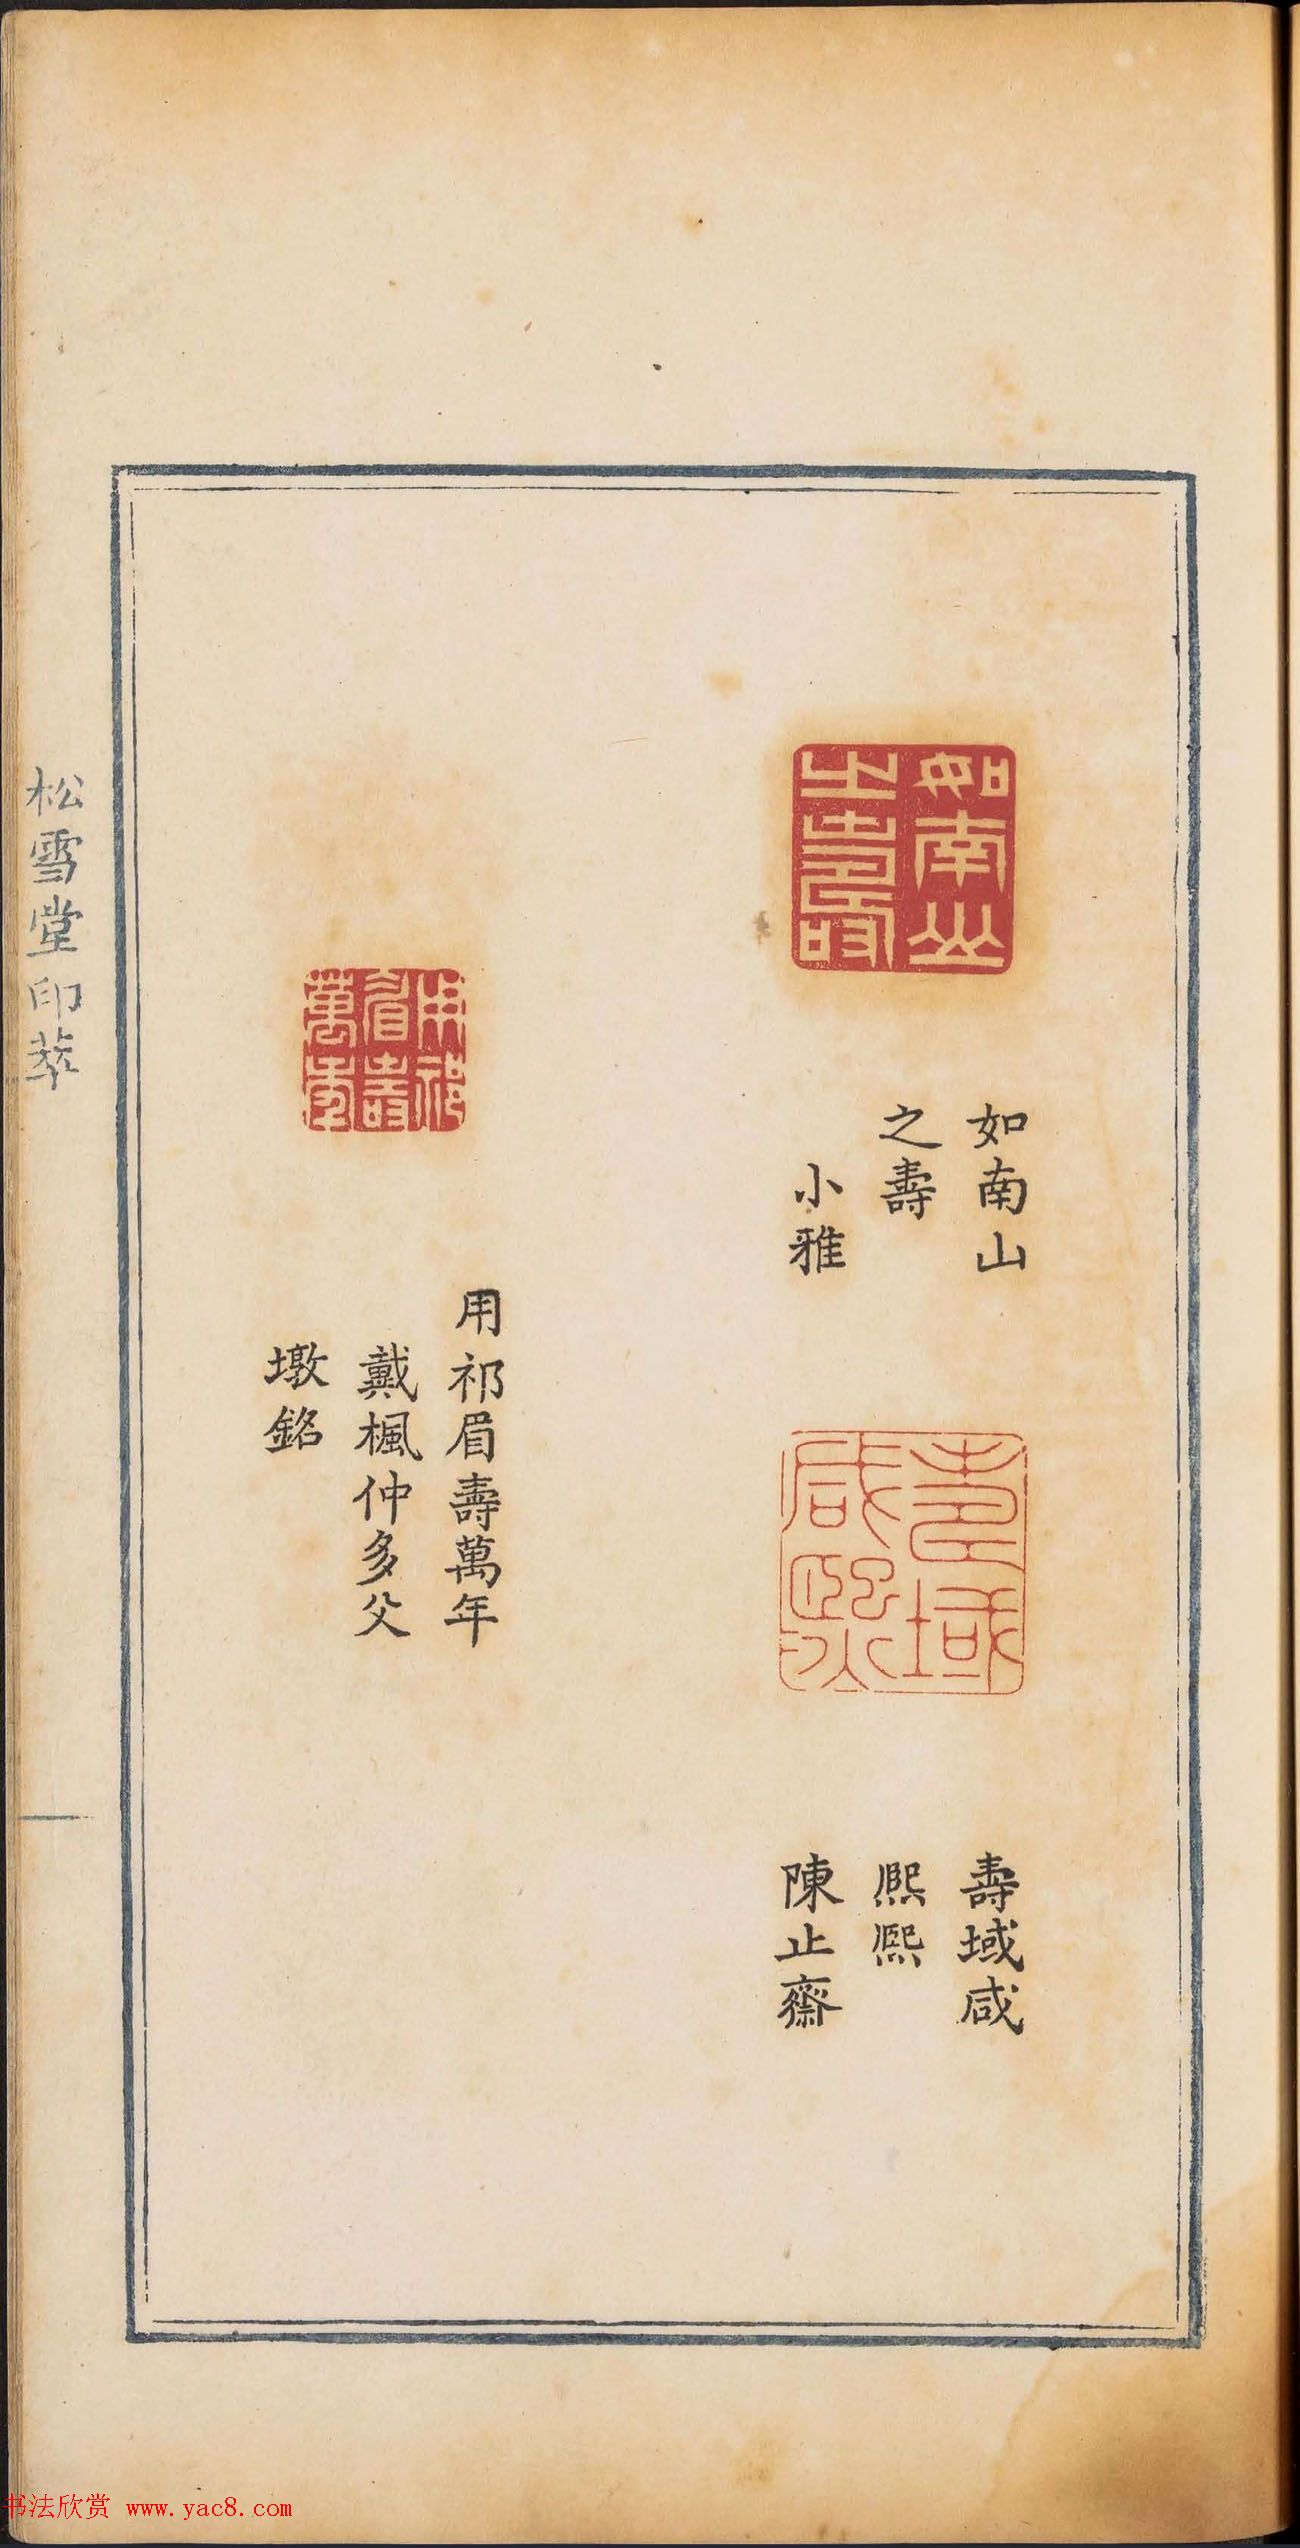 如南山
之壽
如南山
之壽
小雅
壽域
咸熙
壽域咸
熙熙
陳止齋
用祁
眉壽
萬年
用祁眉壽萬年
戴楓仲多父
墩銘
松雪堂印萃
书法欣赏 www.yac8.com